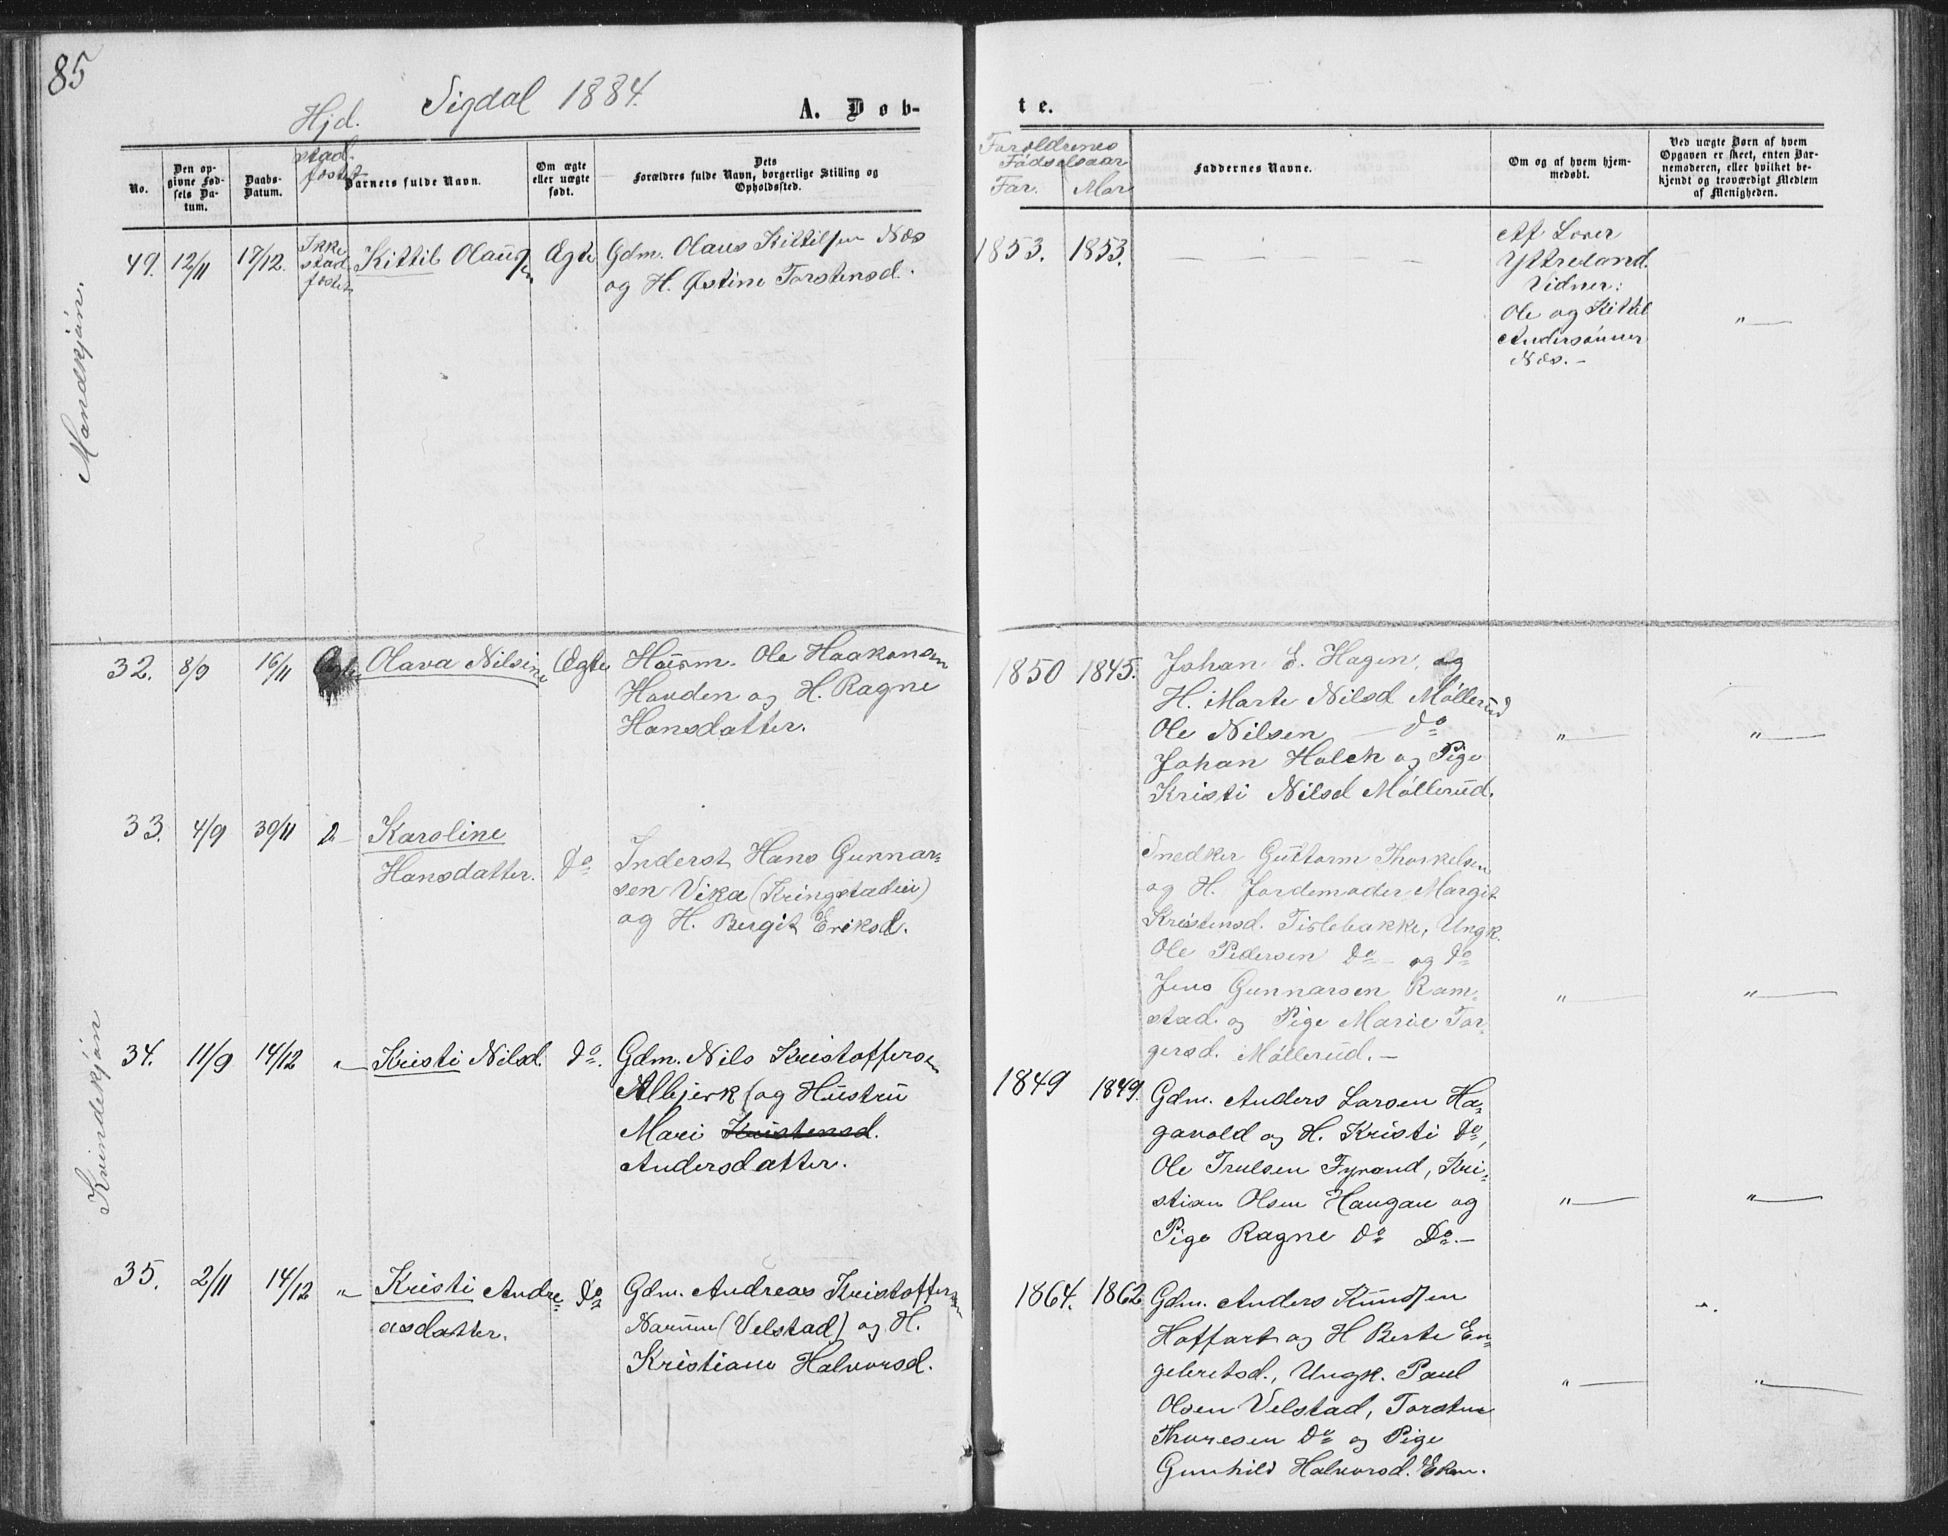 85
Sigdal 1884.
A. Døb-
te.
Hjd.
stad-
fæstet
No.
Den op-
givne Fød-
sels Da-
tum.
Daabs-
Datum.
Barnets fulde Navn.
Om ægte
eller uægte
født.
Dets
Forældres fulde Navn, borgerlige Stilling og
Opholdssted.
Forældrenes
Fødselsaar
Far. Mor
Faddernes Navne.
Om og af hvem hjem-
medøbt.
Ved uægte Børn af hvem
Opgaven er skeet, enten Bar-
nemoderen, eller hvilket be-
kjendt og troværdigt Medlem
af Menigheden.
Mandkjøn.
49. 12/11 17/12.
Ikke
stad
fæstet
Kittil Olausen
Ægte
Gdm. Olaus Kittilsen Næs
og H. Østine Torstensd.
1853. 1853.
— — — — —
Af Lærer
Ytreland.
Vidner:
Ole og Kittil
Andersønner
Næs. —
" —
Kvindekjøn
32. 8/9 16/11
Olava Nilsine
Ægte
Huusm. Ole Haakonsen
Houden og H. Ragne
Hansdatter.
1850 1845.
Johan E. Hagen, og
H. Marte Nilsd Møllerud
Ole Nilsen — do
Johan Holck og Pige
Kristi Nilsd Møllerud.
" — " —
33. 4/9 30/11
Karoline
Hansdatter.
Do
Inderst Hans Gunnar-
sen Vika (Kringstadeie)
og H. Bergit Eriksd.
Snedker Guttorm Thorkelsen
og H. Jordemoder Margit
Kristensd. Tislebakke, Ungk.
Ole Pedersen Do — og Do
Jens Gunnarsen Ram-
stad. og Pige Marie Tor-
gersd. Møllerud. —
" — " —
34. 11/9 14/12 " —
Kristi Nilsd.
do.
Gdm. Nils Kristoffersen
Albjerk (og Hustru
Mari Kristensd.
Andersdatter.
1849 1849.
Gdm. Anders Larsen Ha-
gavold og H. Kristi Do,
Ole Trulsen Fyrand, Kri-
stian Olsen Haugan og
Pige Ragne do Do. —
" — " —
35. 2/11 14/12 " —
Kristi Andre-
asdatter.
Do
Gdm. Andreas Kristoffersen
Narum (Velstad) og H.
Kristiane Halvorsd.
1864. 1862
Gdm. Anders Knudsen
Hoffart og H Berte En-
gebretsd., Ungk. Paul
Olsen Velstad, Torsten
Thoresen Do og Pige
Gunhild Halvorsd. Ekern.
" — " —